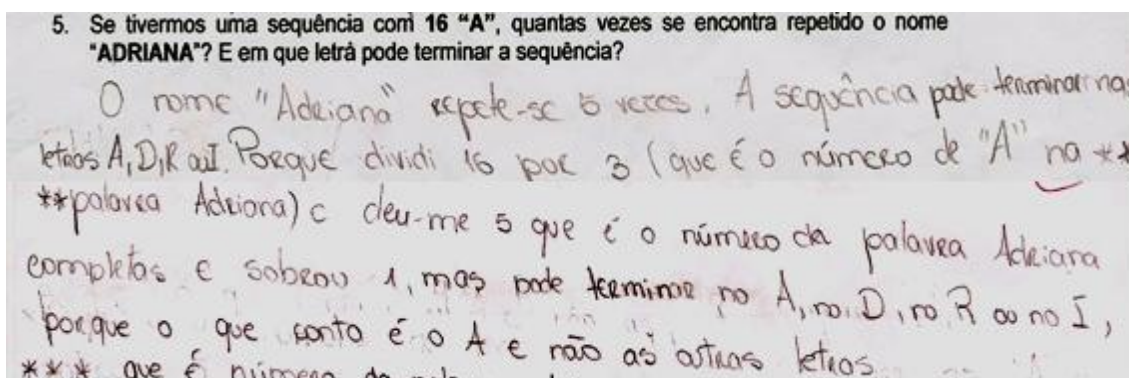 5. Se tivermos uma sequência com 16 “A”, quantas vezes se encontra repetido o nome
“ADRIANA”? E em que letra pode terminar a sequência?
O nome "Adriana" repete-se 5 vezes. A sequência pode terminar nas
letras A, D, R ou I. Porque dividi 16 por 3 (que é o número de "A" na **
**palavra Adriana) e deu-me 5 que é o número da palavra Adriana
completas e sobrou 1, mas pode terminar no A, no D, no R ou no I,
porque o que conto é o A e não as outras letras.
*** que é número da